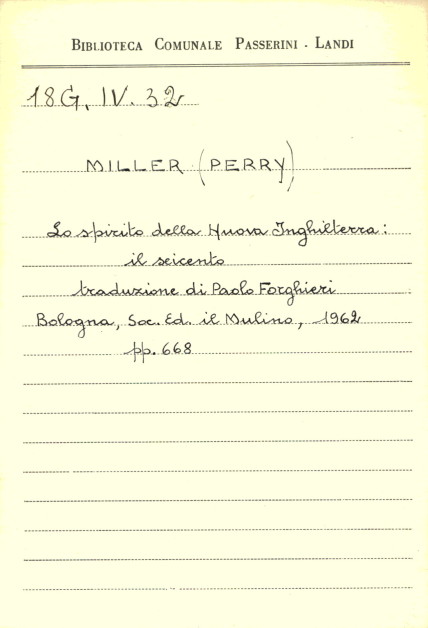 BIBLIOTECA COMUNALE PASSERINI - LANDI
18G. IV. 32
MILLER (PERRY)
Lo spirito della Nuova Inghilterra:
il seicento
traduzione di Paolo Forghieri
Bologna, Soc. Ed. il Mulino, 1962
pp. 668